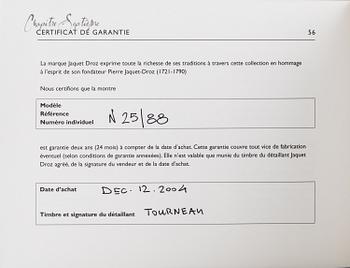 Chapitre Septième
CERTIFICAT DE GARANTIE 56
La marque Jaquet Droz exprime toute la richesse de ses traditions à travers cette collection en hommage
à l'esprit de son fondateur Pierre Jaquet-Droz (1721-1790)
Nous certifions que la montre
Modèle
Référence
Numéro individuel N 25/88
est garantie deux ans (24 mois) à compter de la date d'achat. Cette garantie couvre tout vice de fabrication
éventuel (selon conditions de garantie annexées). Elle n'est valable que munie du timbre du détaillant Jaquet
Droz agréé, de la signature du vendeur et de la date d'achat.
Date d'achat DEC. 12. 2004
Timbre et signature du détaillant TOURNEAU